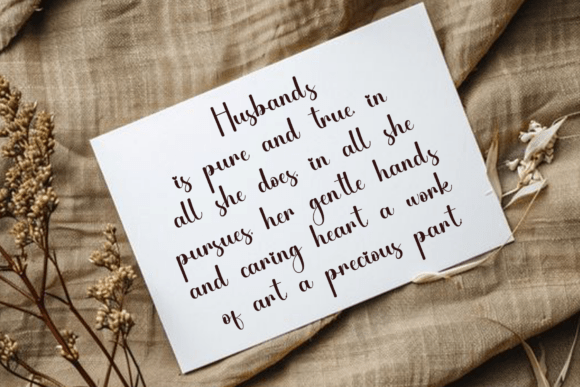 Husbands
is pure and true, in
all she does, in all she
pursues her gentle hands
and caring heart a work
of art a precious part